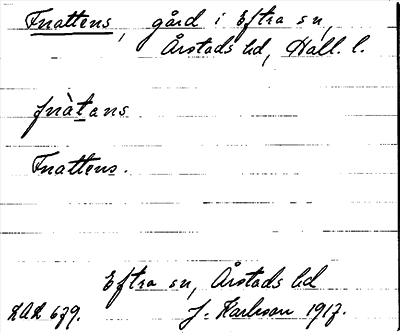 Fnattens, gård i Eftra sn,
Årstads hd, Hall. l.
fnàtans
Fnattens.
Eftra sn, Årstads hd
LAL 679. J. Karlsson 1917.